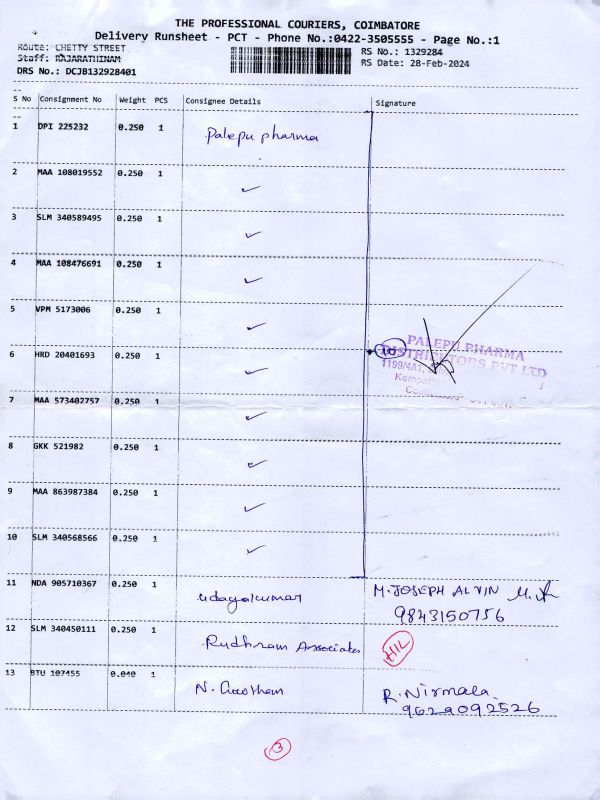 THE PROFESSIONAL COURIERS, COIMBATORE
Delivery Runsheet - PCT - Phone No.:0422-3505555 - Page No.:1
Route: CHETTY STREET
RS No.: 1329284
Staff: RAJARATHINAM
RS Date: 28-Feb-2024
DRS No.: DCJB132928401
S No Consignment No Weight PCS Consignee Details Signature
1 DPI 225232 0.250 1 Palepu pharma
2 MAA 108019552 0.250 1 ✓
3 SLM 340589495 0.250 1 ✓
4 MAA 108476691 0.250 1 ✓
5 VPM 5173006 0.250 1 ✓
6 HRD 20401693 0.250 1 ✓ 10
PALEPU PHARMA
DISTRIBUTORS PVT LTD
1199/4A1,
7 MAA 573402757 0.250 1 ✓
8 GKK 521982 0.250 1 ✓
9 MAA 863987384 0.250 1 ✓
10 SLM 340568566 0.250 1 ✓
11 NDA 905710367 0.250 1 Udayakumar M.JOSEPH ALVIN
9843150756
12 SLM 340450111 0.250 1 Rudhram Associates HIL
13 BTU 107455 0.040 1 N. Gowtham R. Nirmala
9629092526
3